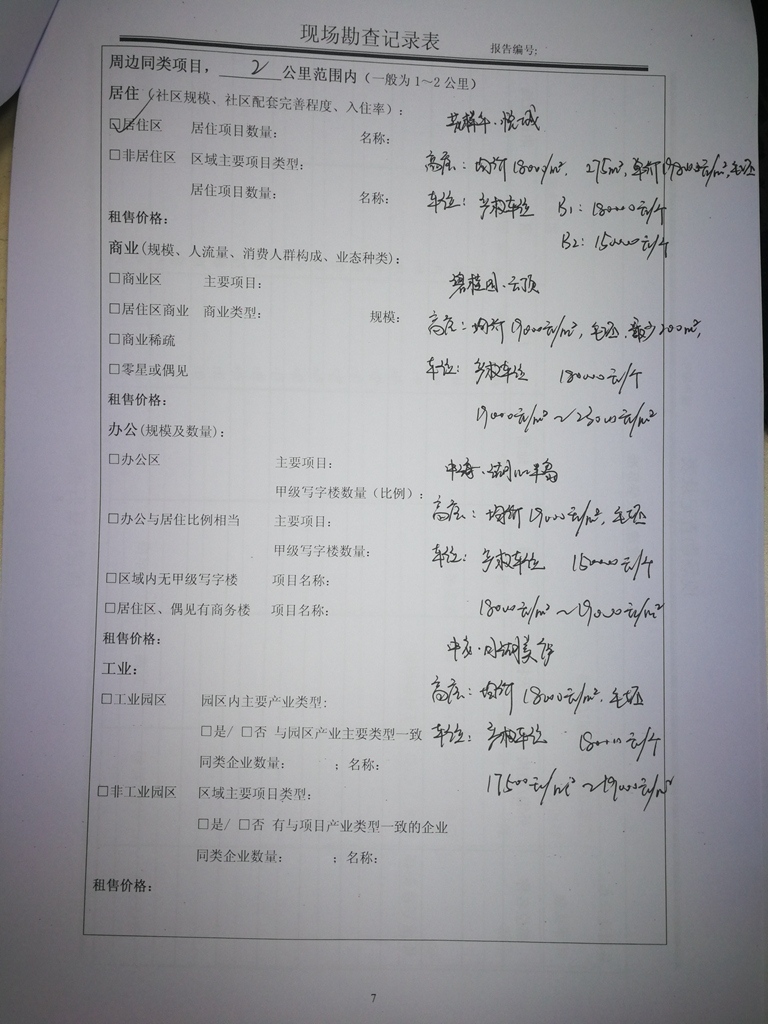 现场勘查记录表
报告编号:
周边同类项目, 2 公里范围内 (一般为1~2公里)
居住 (社区规模、社区配套完善程度、入住率):
☑居住区 居住项目数量: 名称:
悦城
□非居住区 区域主要项目类型:
高层: 均价18000/m², 275m², 单价 毛坯
居住项目数量: 名称:
车位: 产权车位 B1: 180000元/个
租售价格:
B2: 150000元/个
商业(规模、人流量、消费人群构成、业态种类):
□商业区 主要项目:
碧桂园·云顶
□居住区商业 商业类型: 规模:
高层: 均价19000元/m², 毛坯, 最少200m²,
□商业稀疏
□零星或偶见
车位: 产权车位 180000元/个
租售价格:
19000元/m²~23000元/m²
办公(规模及数量):
□办公区 主要项目:
中海·
半岛
甲级写字楼数量(比例):
高层: 均价19000元/m², 毛坯
□办公与居住比例相当 主要项目:
甲级写字楼数量:
车位: 产权车位 150000元/个
□区域内无甲级写字楼 项目名称:
□居住区、偶见有商务楼 项目名称:
18000元/m²~19000元/m²
租售价格:
工业:
高层: 均价18000元/m², 毛坯
□工业园区 园区内主要产业类型:
□是/ □否 与园区产业主要类型一致
车位: 产权车位 180000元/个
同类企业数量: ; 名称:
17500元/m²~19000元/m²
□非工业园区 区域主要项目类型:
□是/ □否 有与项目产业类型一致的企业
同类企业数量: ; 名称:
租售价格:
7